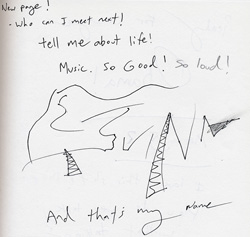 New page!
- Who can I meet next!
tell me about life!
Music. So Good! So loud!
And that's my name